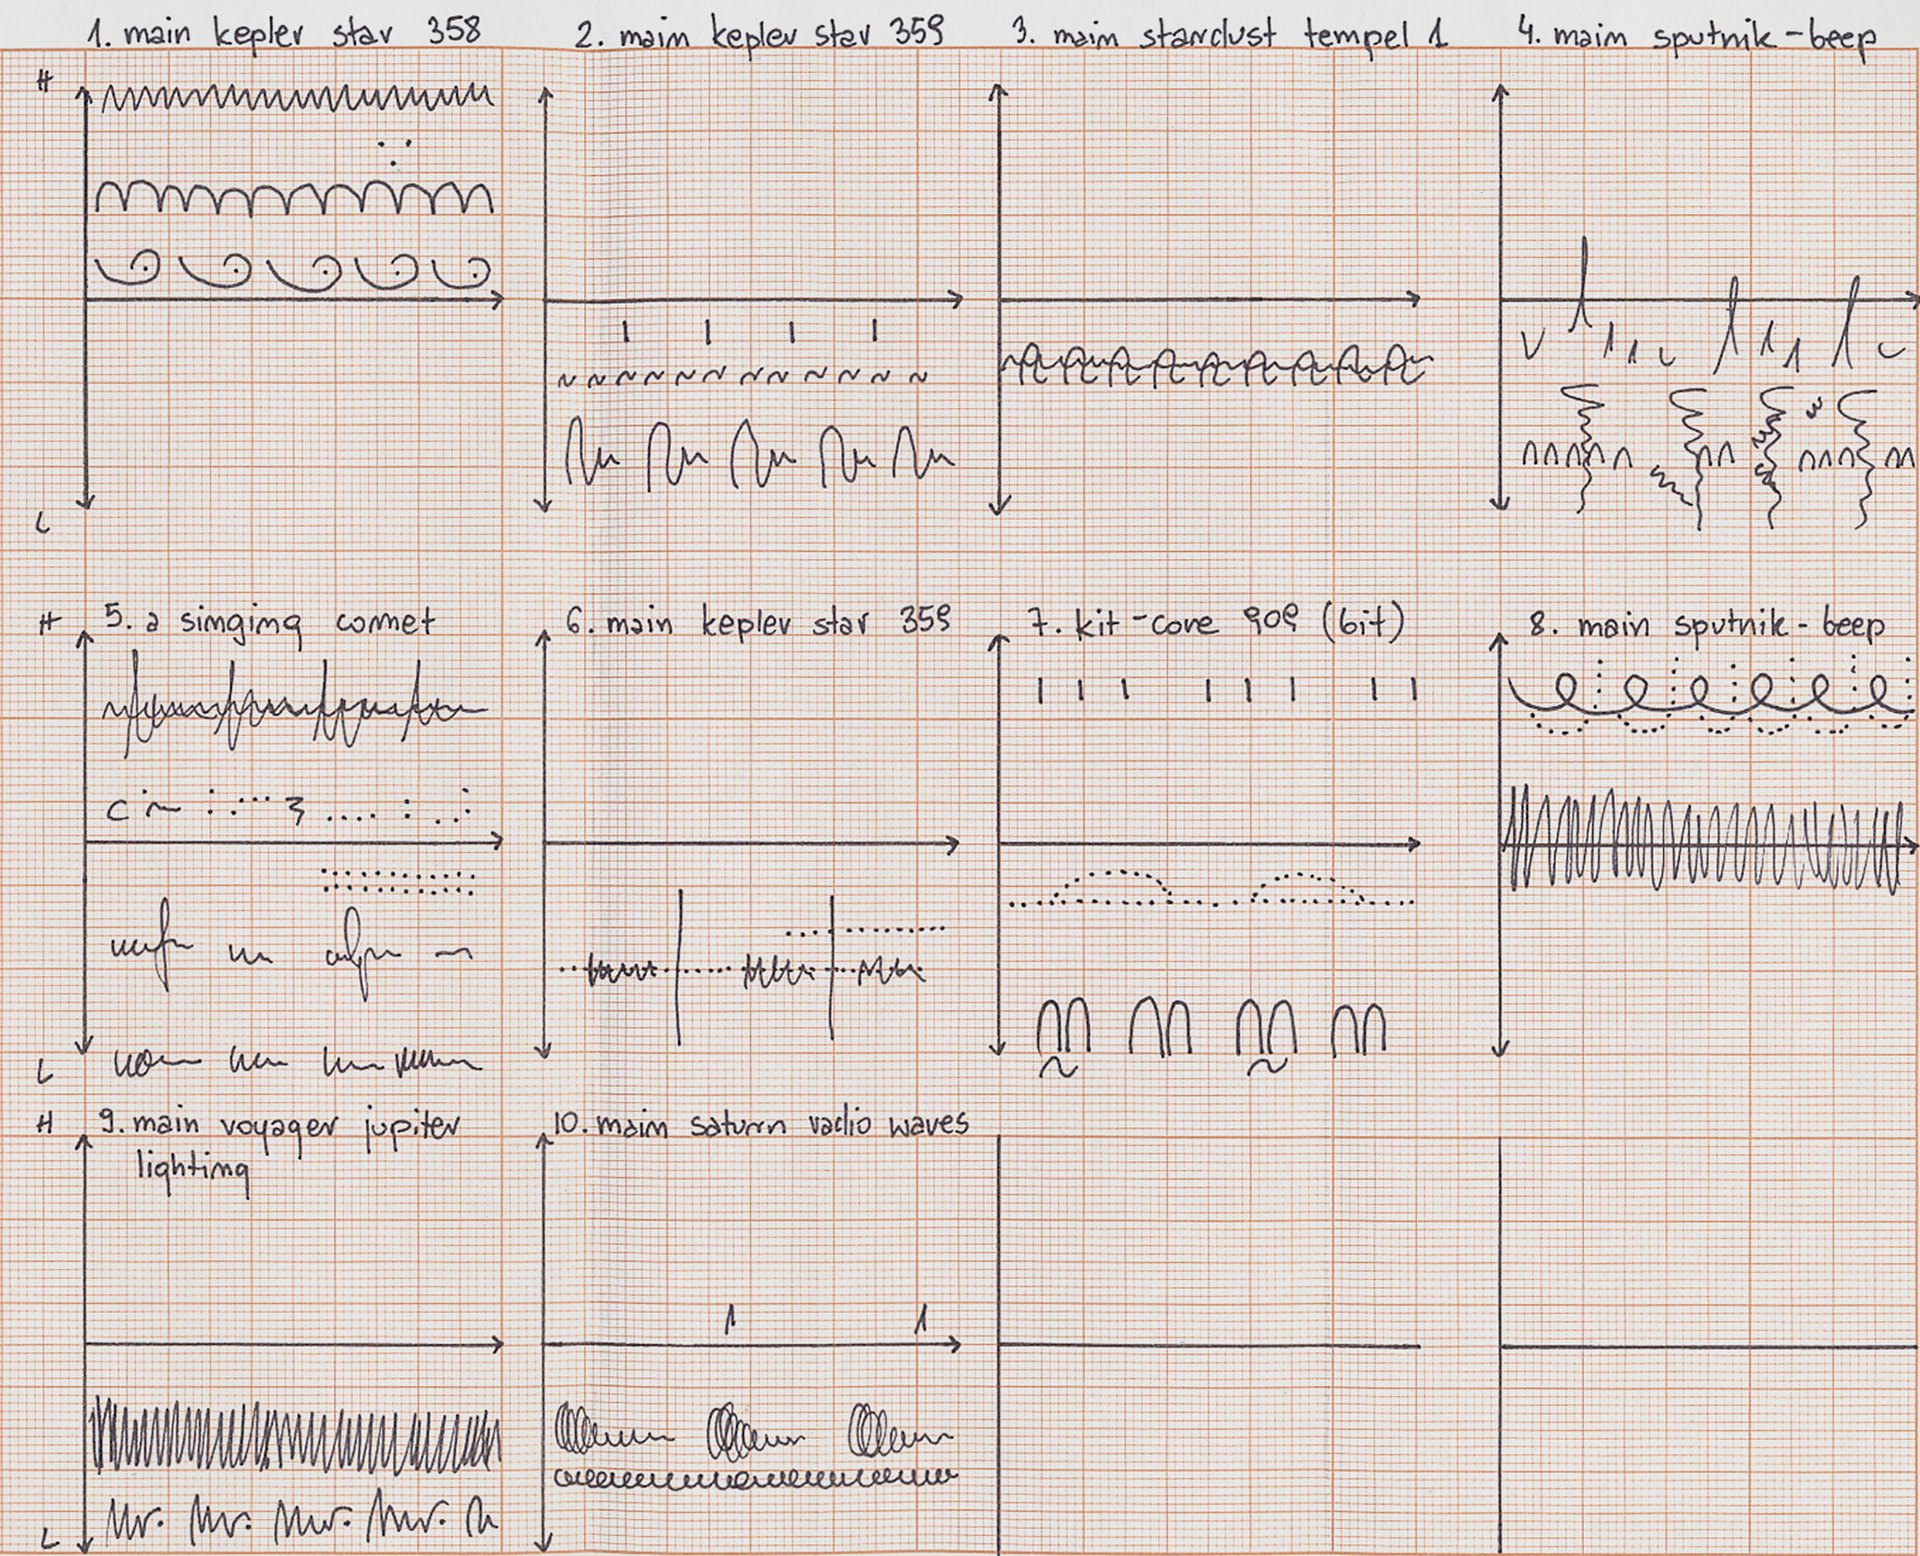 1. main kepler star 358
2. main kepler star 359
3. main stardust tempel 1
4. main sputnik-beep
H
L
H
5. a singing comet
6. main kepler star 359
7. kit-core 909 (bit)
8. main sputnik-beep
L
H
9. main voyager jupiter
lighting
10. main saturn radio waves
L